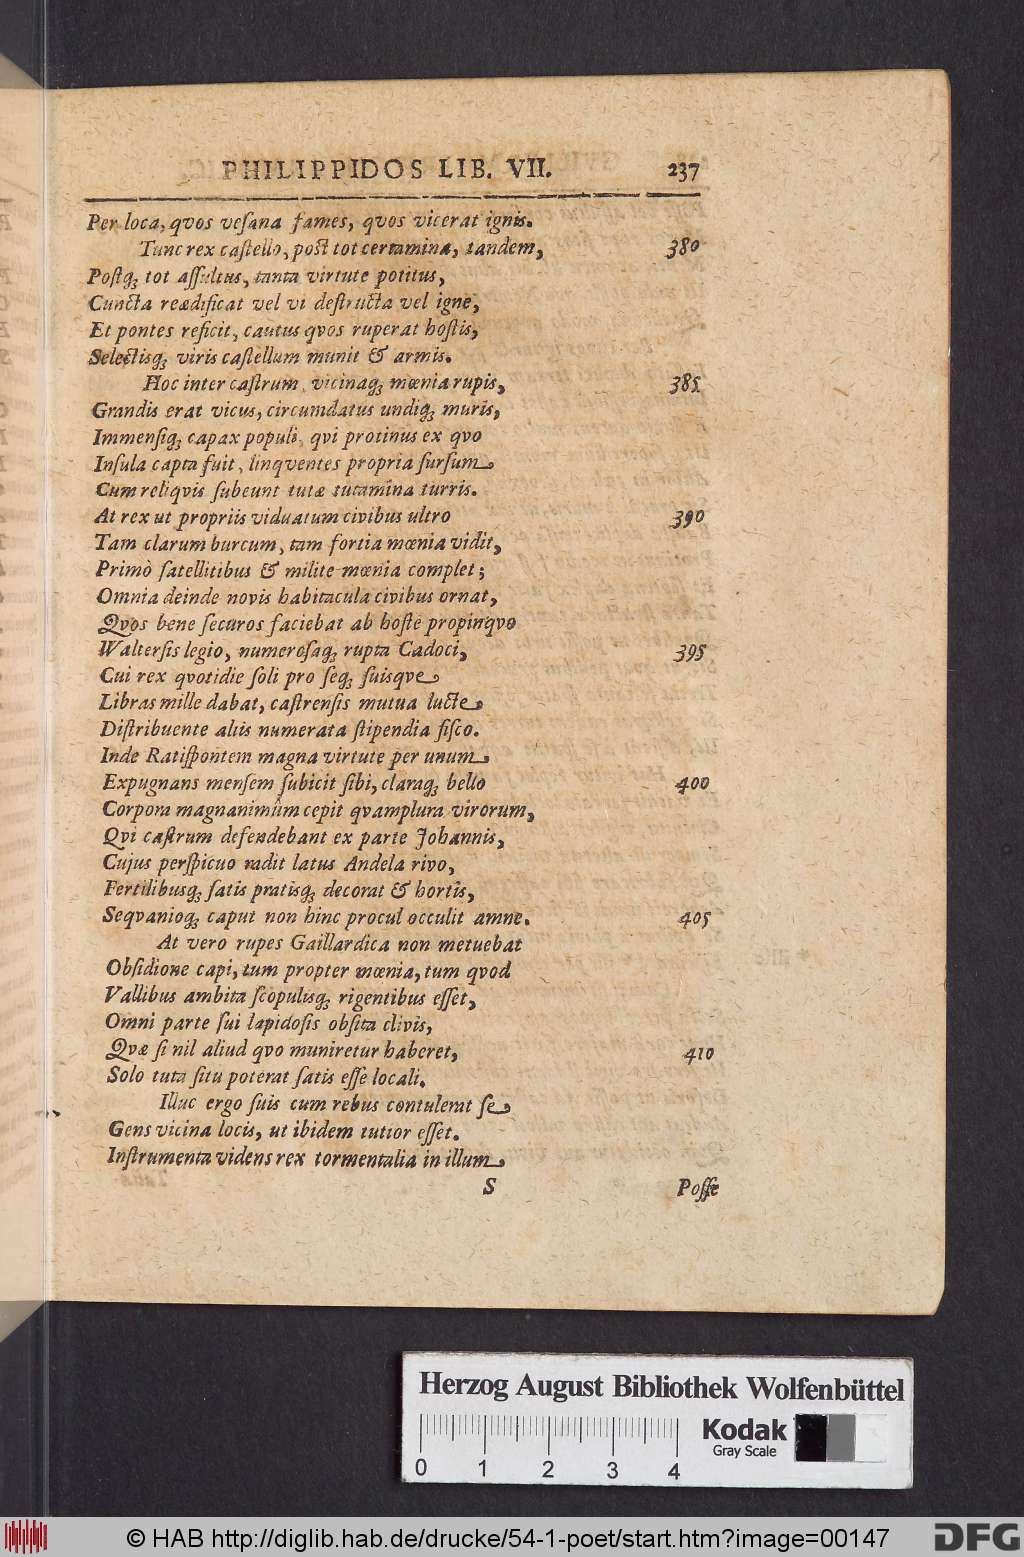 PHILIPPIDOS LIB. VII. 237
Per loca, qvos veſana fames, qvos vicerat ignis.
Tunc rex caſtello, poſt tot certamina, tandem, 380
Poſtq; tot aſſultus, tanta virtute potitus,
Cuncta reædificat vel vi deſtructa vel igne,
Et pontes reficit, cautus qvos ruperat hoſtis,
Selectisq; viris caſtellum munit & armis.
Hoc inter caſtrum vicinaq; mœnia rupis, 385
Grandis erat vicus, circumdatus undiq; muris,
Immenſiq; capax populi, qvi protinus ex qvo
Inſula capta fuit, linqventes propria ſurſum
Cum reliqvis ſubeunt tutæ tutamina turris.
At rex ut propriis viduatum civibus ultro 390
Tam clarum burcum, tam fortia mœnia vidit,
Primò ſatellitibus & milite mœnia complet;
Omnia deinde novis habitacula civibus ornat,
Qvos bene ſecuros faciebat ab hoſte propinqvo
Walterſis legio, numeroſaq; rupta Cadoci, 395
Cui rex qvotidie ſoli pro ſeq; ſuisqve
Libras mille dabat, caſtrenſis mutua luctæ
Diſtribuente aliis numerata ſtipendia fiſco.
Inde Ratiſpontem magna virtute per unum
Expugnans menſem ſubicit ſibi, claraq; bello 400
Corpora magnanimûm cepit qvamplura virorum,
Qvi caſtrum defendebant ex parte Johannis,
Cujus perſpicuo radit latus Andela rivo,
Fertilibusq; ſatis pratisq; decorat & hortis,
Seqvanioq; caput non hinc procul occulit amne. 405
At vero rupes Gaillardica non metuebat
Obſidione capi, tum propter mœnia, tum qvod
Vallibus ambita ſcopulisq; rigentibus eſſet,
Omni parte ſui lapidoſis obſita clivis,
Qvæ ſi nil aliud qvo muniretur haberet, 410
Solo tuta ſitu poterat ſatis eſſe locali.
Illuc ergo ſuis cum rebus contulerat ſe
Gens vicina locis, ut ibidem tutior eſſet.
Inſtrumenta videns rex tormentalia in illum
S Poſſe
Herzog August Bibliothek Wolfenbüttel
Kodak
Gray Scale
0 1 2 3 4
© HAB http://diglib.hab.de/drucke/54-1-poet/start.htm?image=00147
DFG